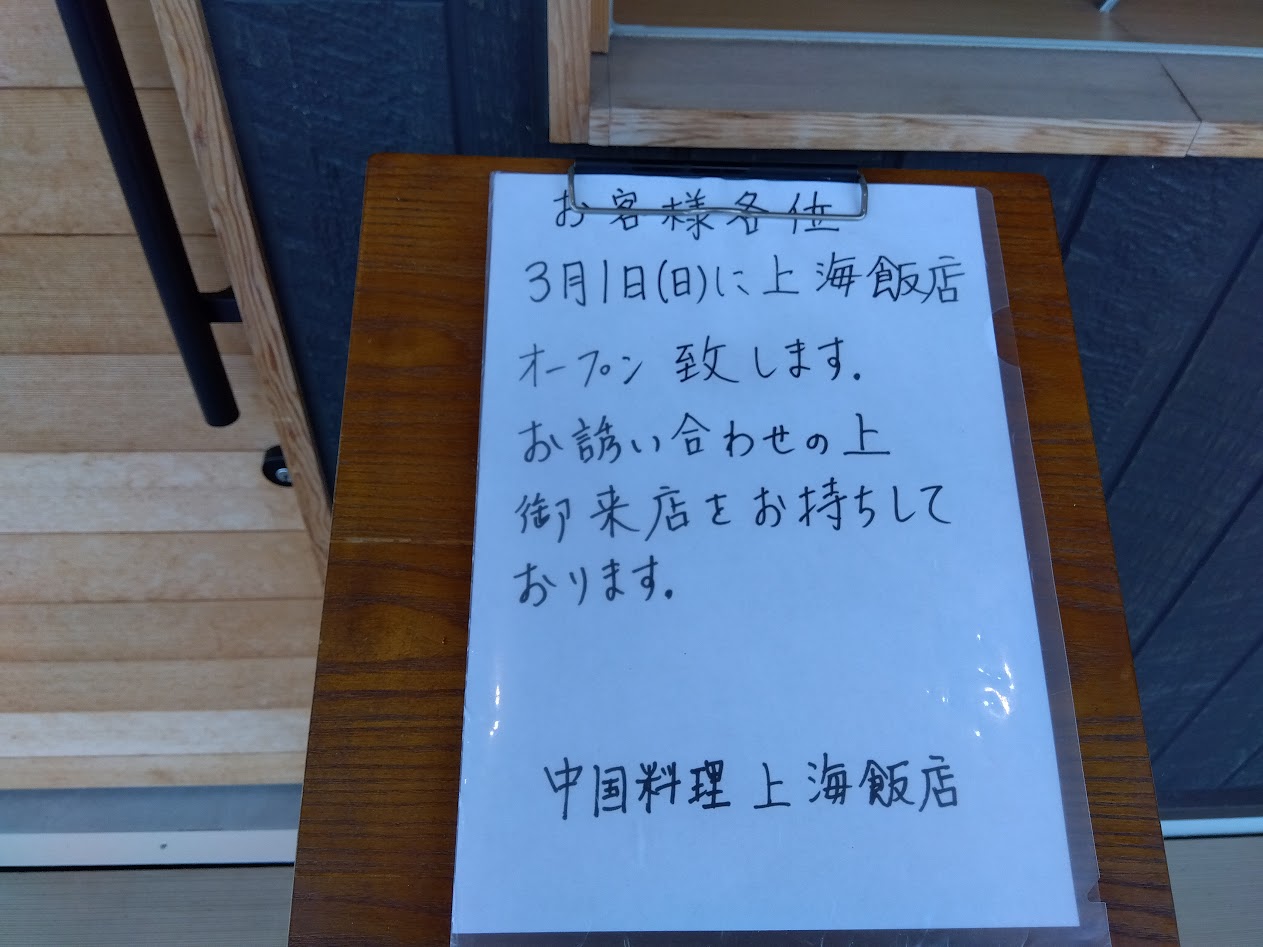 お客様各位
3月1日(日)に上海飯店
オープン致します.
お誘い合わせの上
御来店をお持ちして
おります.
中国料理 上海飯店